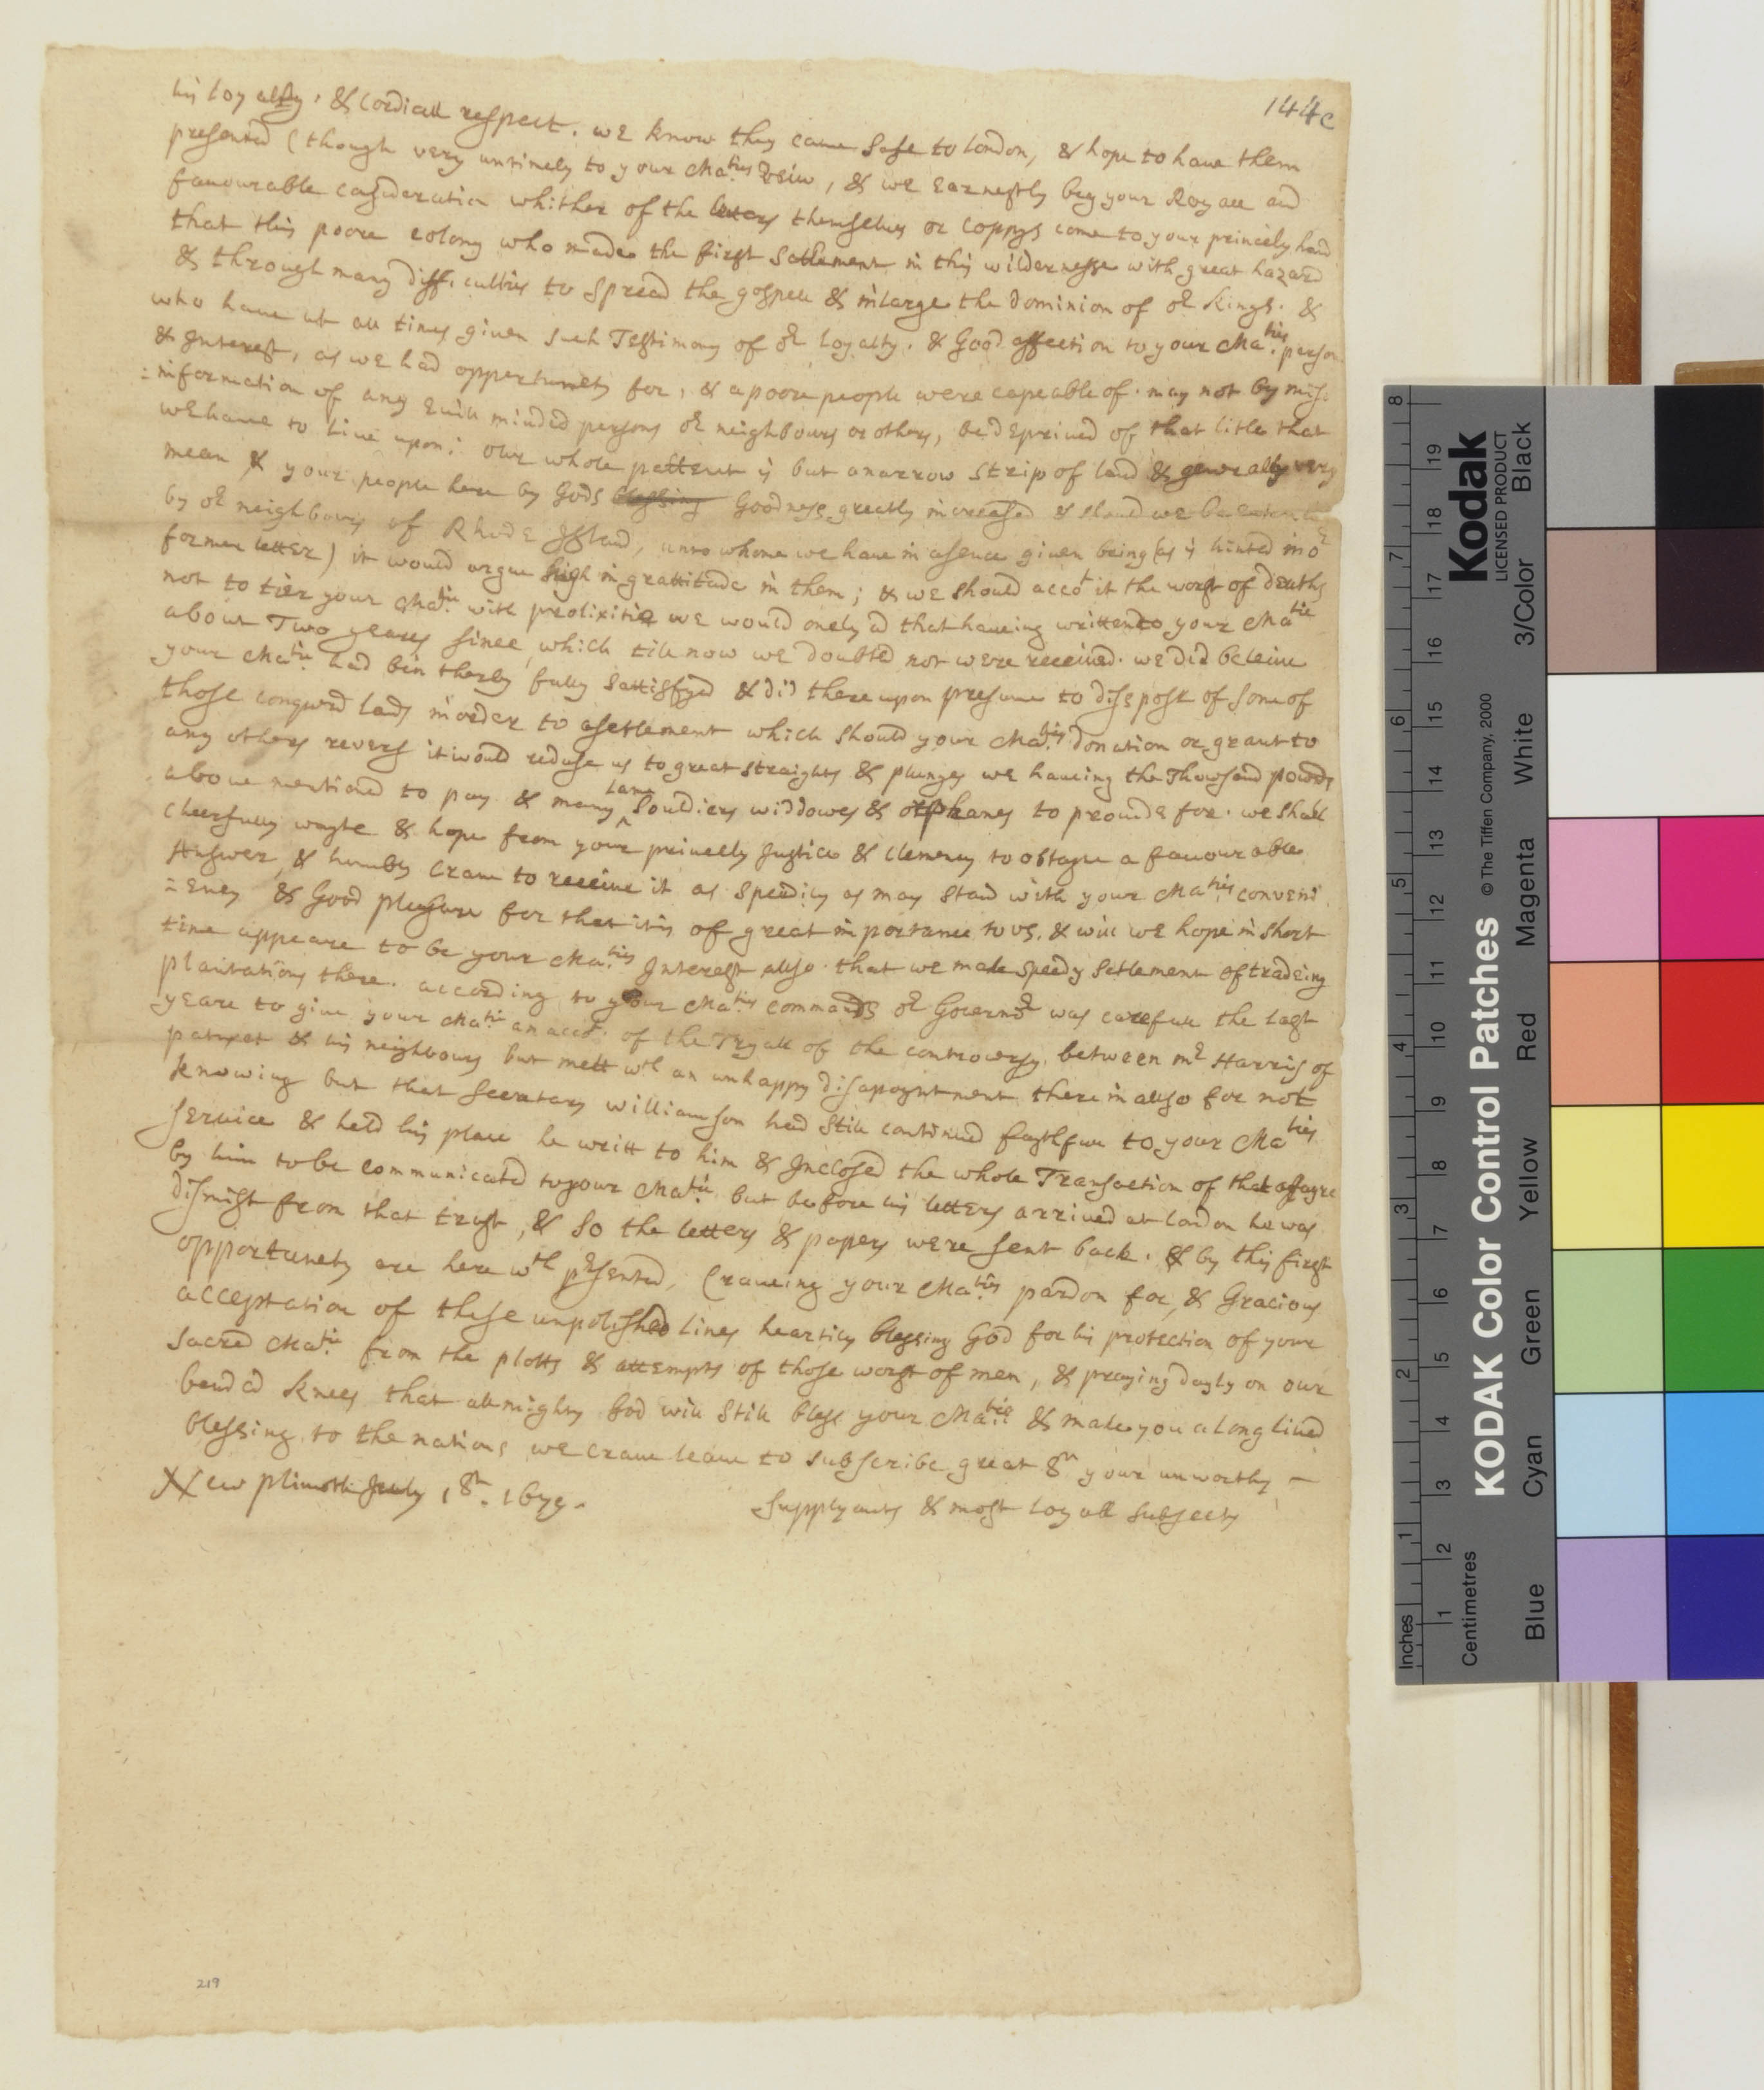 144c
his loyalty, & Cordiall respect. we know they came safe to London, & hope to have them
presented (though very untimely to your Ma:ties Veiw, & we Earnestly beg your Royall and
favourable consideration whither of the letters themselves or Coppys come to your princely hand
that this poore colony who made the first Setlement in this wildernesse with great hazard
& through many difficulties to Spread the gospell & inlarge the dominion of or Kings. &
who have at all times given such Testimony of or Loyalty. & Good affection to your Ma:ties person
& Interest, as we had oppertunety for, & a poore people were capeable of. may not by mis=
=information of any Evill minded persons or neighbours or others, be deprived of that litle that
we have to live upon: our whole pattent is but a narrow Strip of land & generally very
mean & your people here by Gods blessing Goodness greatly increased & should we be
by or neighbours of Rhode Island, unto whome we have in a sence given being (as is hinted in or
former letter) it would argue high ingrattitude in them; & we should accot it the worst of deaths
not to tier your Matie with prolixitie we would onely ad that haveing written to your Matie
about Two yeares since, which till now we doubted not were received. we did beleive
your Matie had bin therby fully Sattisfyed & did thereupon presume to disspose of some of
those conqured lands in order to a setlement which should your Ma:ties donation or grant to
any others revers it would reduse us to great straights & plunges we haveing the Thowsand pownds
above mentioned to pay & many ^ Souldiers widdowes & orphanes to provide for. we shall
Lame
Cheerfully wayte & hope from your princelly Justice & Clemency to obtayne a favourable
Answer, & humbly Crave to receive it as Speedily as may Stand with your Ma:ties conveni
=Ency & Good pleasure for that it is of great importance to us. & will we hope in short
time appeare to be your Ma:ties Interest allso that we made speedy Setlement of tradeing
plantations there. according to your Ma:ties commands or Governor was carefull the last
yeare to give your Ma:tie an accot. of the Tryall of the controversy between mr Harris of
patuxet & his neighbours but mett wth an unhappy disapoyntment therein allso for not
knowing but that Secretary Williamson had Still continued faythfull to your Maties
service & held his place he writt to him & Inclosed the whole Transaction of that affayre
by him to be communicated to your Ma:tie but before his letters arrived at London he was
dismist from that trust, & So the letters & papers were sent back. & by this first
opportunety are here wth presented, Craveing your Ma:ties pardon for, & Gracious
acceptation of these unpolished lines heartily blessing God for his protection of your
Sacred Ma:tie from the plotts & attempts of those worst of men, & praying dayly on our
bended knees that allmighty God will Still bless your Ma:tie & make you a long lived
blessing to the nations we crave leave to subscribe great Sr your unworthy –
New plimoth July 1 8th. 1679. Supplyants & most loyall subjects
219
KODAK Color Control Patches © The Tiffen Company, 2000
Kodak
LICENSED PRODUCT
Inches 1 2 3 4 5 6 7 8
Centimetres 1 2 3 4 5 6 7 8 9 10 11 12 13 14 15 16 17 18 19
Blue Cyan Green Yellow Red Magenta White 3/Color Black